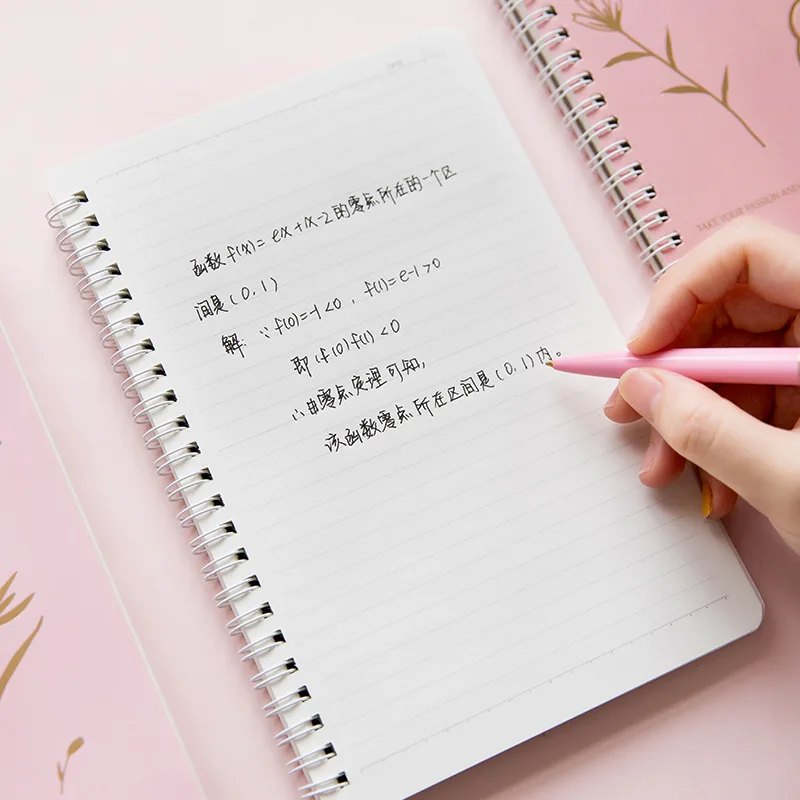 函数 f(x)= ex+1x-2的零点所在的一个区
间是(0,1)
解: ∵f(0)=-1<0, f(1)=e-1>0
即 (f(0)f(1)<0
∴由零点定理可知,
该函数零点所在区间是(0,1)内。
TAKE YOUR PASSION AND